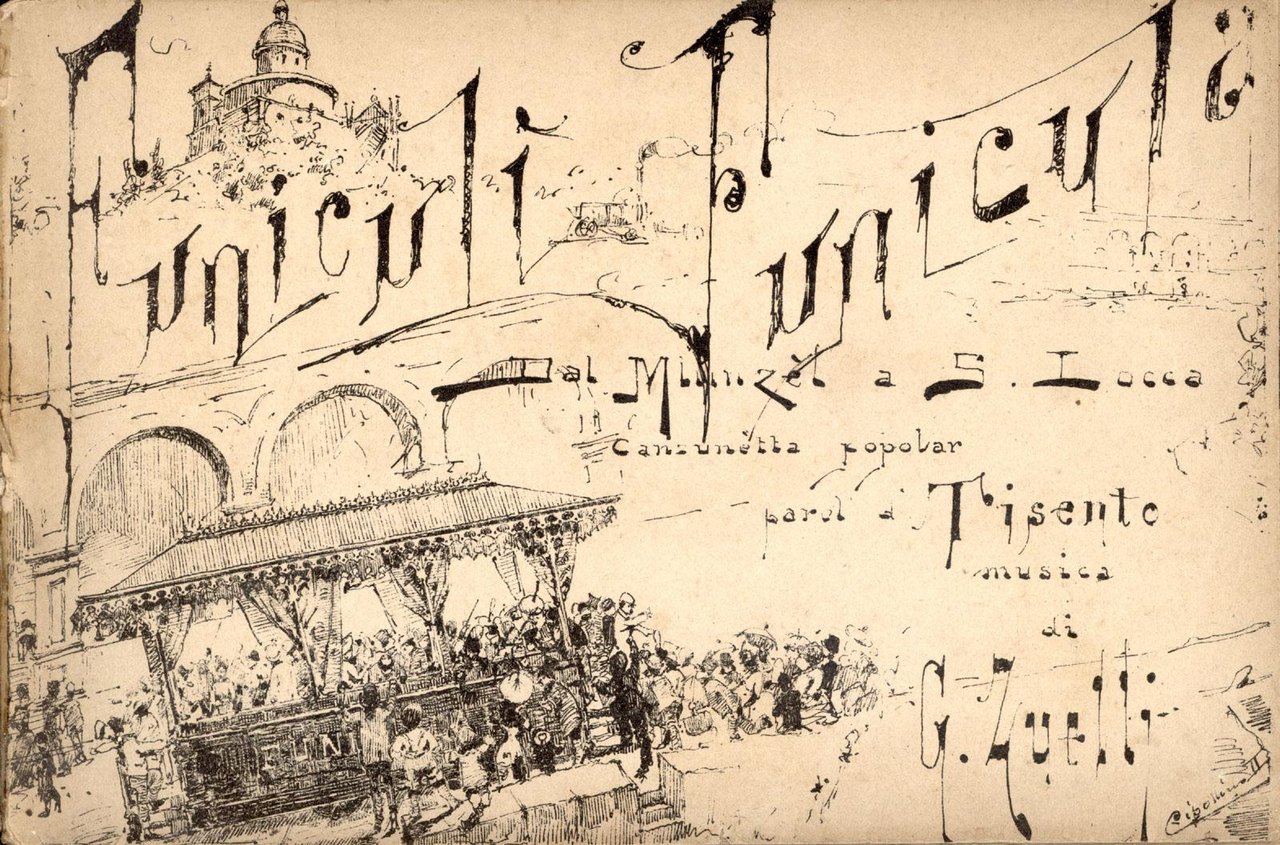 Funiculì Funiculà
Dal Mlunzèl a S. Locca
Canzunètta popolar
parol Tisento
musica
di
G. Zuelli
FUNI